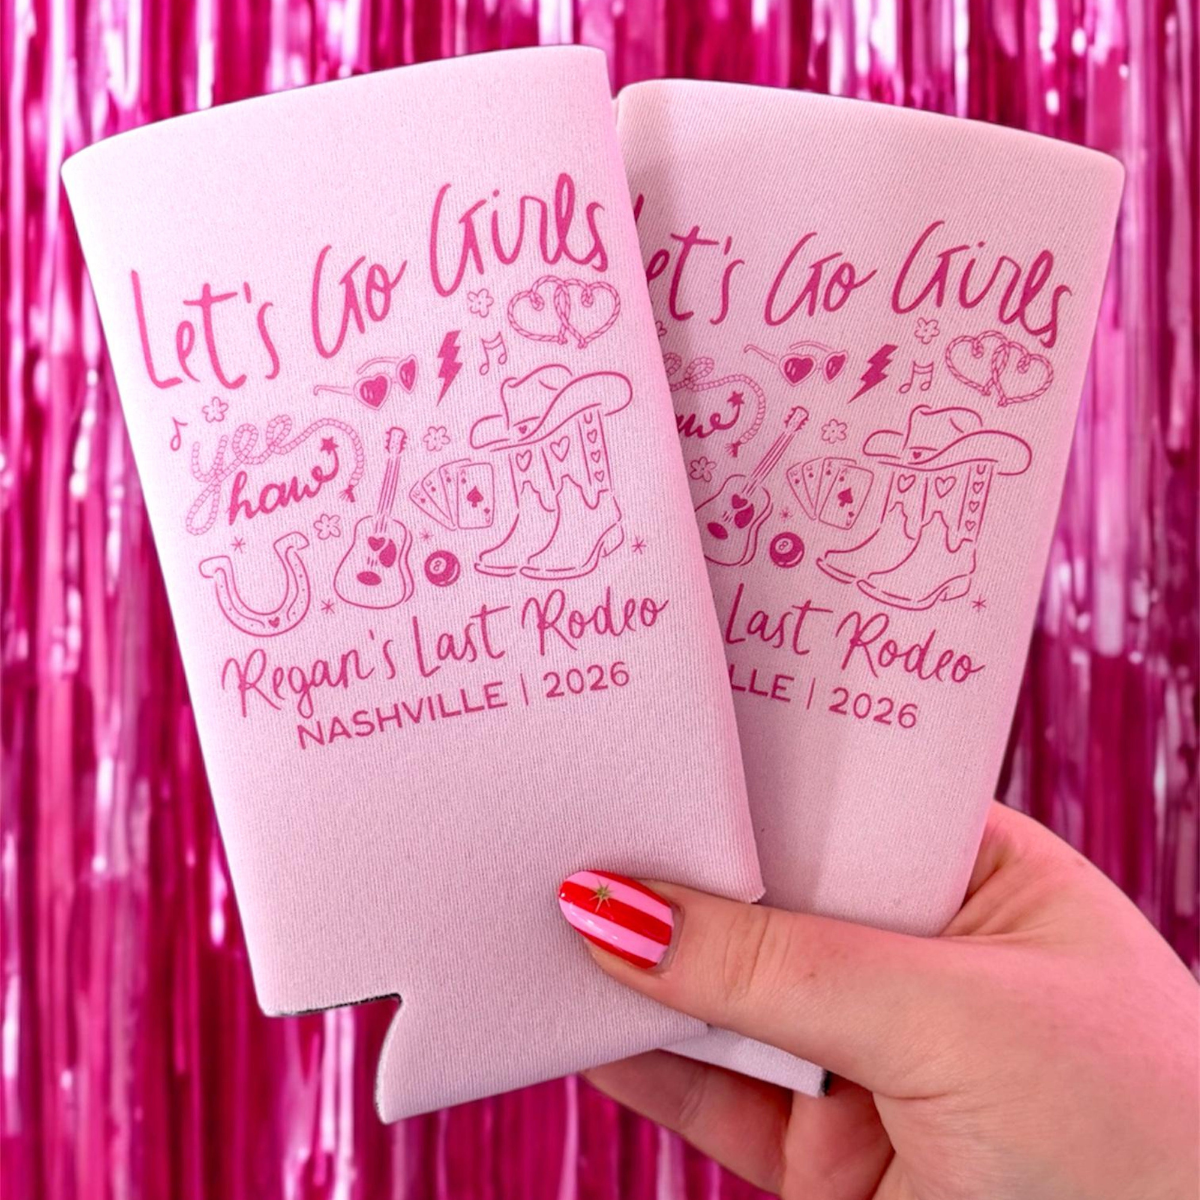 Let's Go Girls
yee
haw
8
Regan's Last Rodeo
NASHVILLE | 2026
Let's Go Girls
8
Last Rodeo
LLE | 2026